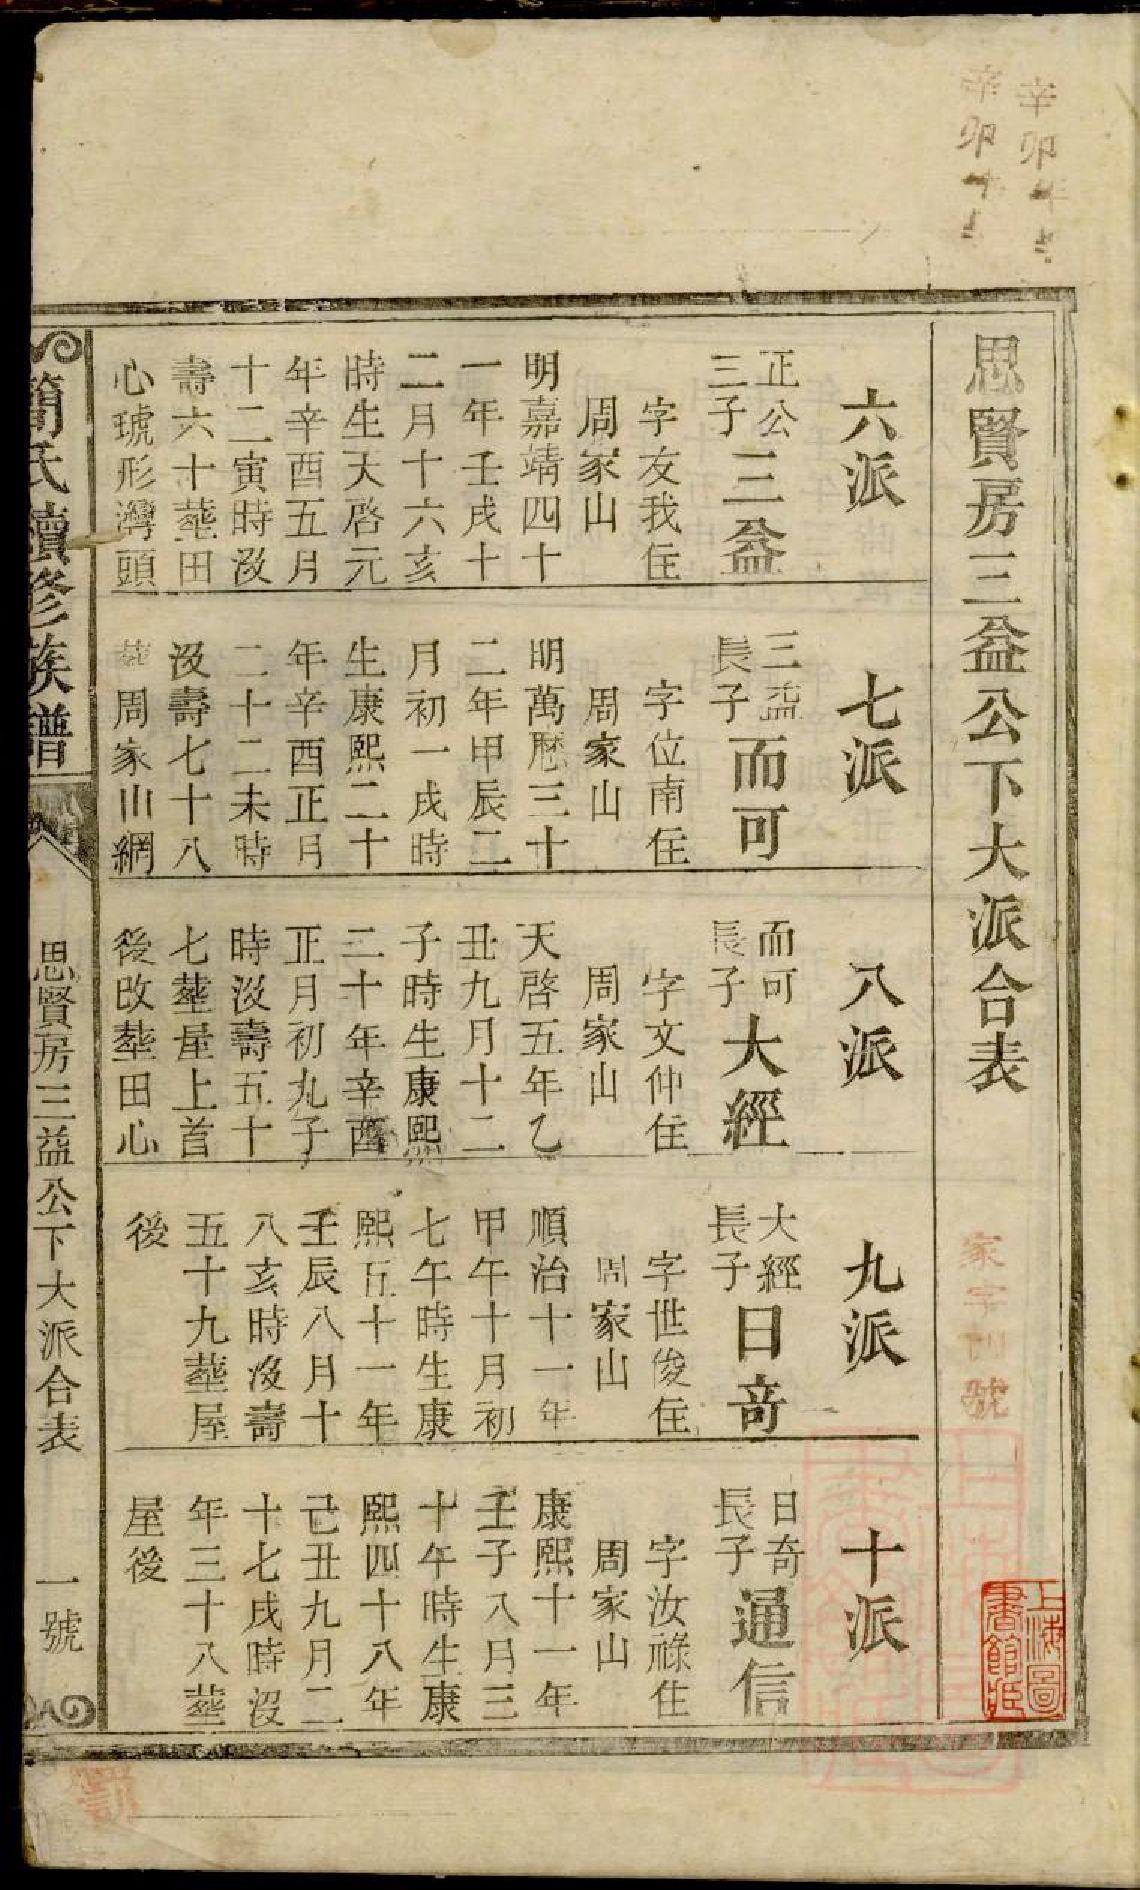 思賢房三益公下大派合表
六派
正公
三子
三益
字友我住
周家山
明嘉靖四十
一年壬戌十
二月十六亥
時生天啓元
年辛酉五月
十二寅時沒
壽六十塟田
心琥形灣頭
七派
三益
長子
而可
字位南住
周家山
明萬歷三十
二年甲辰二
月初一戌時
生康熙二十
年辛酉正月
二十二未時
沒壽七十八
塟周家山網
八派
而可
長子
大經
字文仲住
周家山
天啓五年乙
丑九月十二
子時生康熙
二十年辛酉
正月初九子
時沒壽五十
七塟星上首
後改塟田心
九派
大經
長子
日奇
字世俊住
周家山
順治十一年
甲午十月初
七午時生康
熙五十一年
壬辰八月十
八亥時沒壽
五十九塟屋
後
十派
日奇
長子
通信
字汝祿住
周家山
康熙十一年
壬子八月三
十午時生康
熙四十八年
己丑九月二
十七戌時沒
年三十八塟
屋後
簡氏續修族譜
思賢房三益公下大派合表
一號
辛卯年
辛卯十
家字 號
上海圖
書館藏